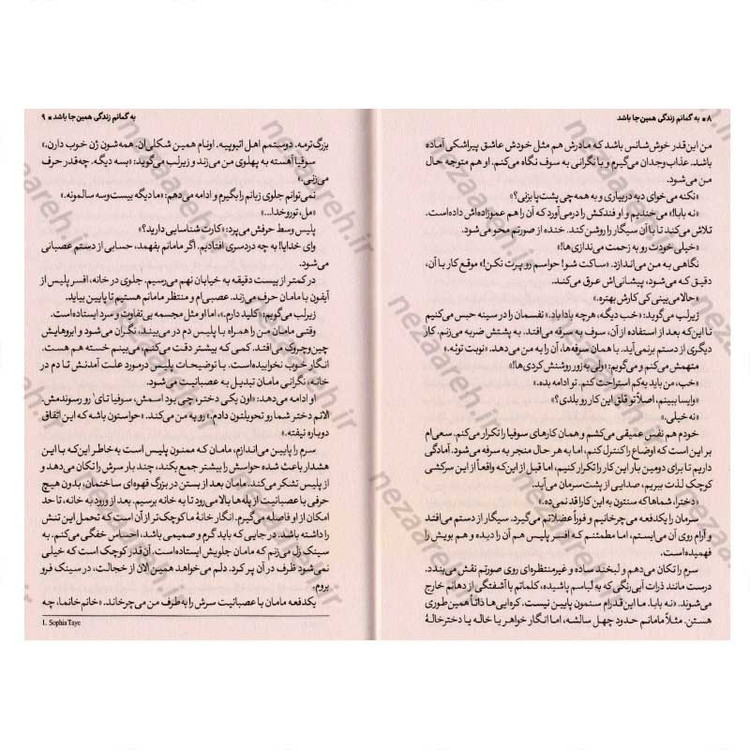 ۸ ▪ به گمانم زندگی همین‌جا باشد
من این‌قدر خوش‌شانس باشد که مادرش هم مثل خودش عاشق پیراشکی آماده
باشد. عذاب‌وجدان می‌گیرم و با نگرانی به سوف نگاه می‌کنم. او هم متوجه حال
من می‌شود.
«نکنه می‌خوای دبه دربیاری و به همه‌چی پشت‌پا بزنی؟»
«نه بابا!» می‌خندیم و او فندکش را درمی‌آورد که آن را هم عموزاده‌اش داده‌است.
تلاش می‌کند تا با آن سیگار را روشن کند. خنده از صورتم محو می‌شود.
«خیلی خودت رو به زحمت می‌ندازی‌ها!»
نگاهی به من می‌اندازد. «ساکت شو! حواسم رو پرت نکن!» موقع کار با آن،
دقیق که می‌شود، پیشانی‌اش عرق می‌کند.
«حالا می‌بینی کی کارش بهتره.»
زیرلب می‌گوید: «خب دیگه، هرچه باداباد.» نفسمان را در سینه حبس می‌کنیم
تا این‌که بعد از استفاده از آن، سوف به سرفه می‌افتد. به پشتش ضربه می‌زنم. کار
دیگری از دستم برنمی‌آید. با همان سرفه‌ها، آن را به من می‌دهد. «نوبت توئه.»
متهمش می‌کنم و می‌گویم: «ولی به زور روشنش کردی‌ها!»
«خب، من باید یه‌کم استراحت کنم. تو ادامه بده.»
«وایسا ببینم، اصلاً تو قلق این کار رو بلدی؟»
«نه خیلی.»
خودم هم نفس عمیقی می‌کشم و همان کارهای سوفیا را تکرار می‌کنم. سعی‌ام
بر این است که اوضاع را کنترل کنم، اما به هر حال منجر به سرفه می‌شود. آمادگی
داریم تا برای دومین بار این کار را تکرار کنیم، اما قبل از این‌که واقعاً از این سرکشی
کوچک لذت ببریم، صدایی از پشت‌سرمان می‌آید.
«دخترا، شماها که سنتون به این کار قد نمی‌ده.»
سرمان را یکدفعه می‌چرخانیم و فوراً عضلاتم می‌گیرد. سیگار از دستم می‌افتد
و آرام روی آن می‌ایستم، اما مطمئنم که افسر پلیس هم آن را دیده و هم بویش را
فهمیده‌است.
سرم را تکان می‌دهم و لبخند ساده و غیرمنتظره‌ای روی صورتم نقش می‌بندد.
درست مانند ذرات آبی‌رنگی که به لباسم پاشیده، کلماتم با آشفتگی از دهانم خارج
می‌شوند. «نه بابا. ما این‌قدرام سنمون پایین نیست. کره‌ایی‌ها ذاتاً همین‌طوری
هستن. مثلاً مامانم حدود چهل سالشه، اما انگار خواهر یا خاله یا دخترخالهٔ
به گمانم زندگی همین‌جا باشد ▪ ۹
بزرگ‌ترمه. دوستمم اهل اتیوپیه. اونام همین شکلی‌ان. همه‌شون ژن خوب دارن.»
سوفیا آهسته به پهلوی من می‌زند و زیرلب می‌گوید: «بسه دیگه. چه‌قدر حرف
می‌زنی.»
نمی‌توانم جلوی زبانم را بگیرم و ادامه می‌دهم: «ما دیگه بیست‌وسه سالمونه.»
«مل، تورو‌خدا...»
پلیس وسط حرفش می‌پرد: «کارت شناسایی دارید؟»
وای خدایا! به چه دردسری افتادیم. اگر مامانم بفهمد، حسابی از دستم عصبانی
می‌شود.
در کمتر از بیست دقیقه به خیابان نهم می‌رسیم. جلوی در خانه، افسر پلیس از
آیفون با مامان حرف می‌زند. عصبی‌ام و منتظر مامانم هستیم تا پایین بیاید.
زیرلب می‌گویم: «کلید دارم.»، اما او مثل مجسمه بی‌تفاوت و سرد ایستاده‌است.
وقتی مامان من را همراه با پلیس دم در می‌بیند، نگران می‌شود و ابروهایش
چین‌وچروک می‌افتد. کمی که بیشتر دقت می‌کنم، می‌بینم خسته هم هست.
انگار خوب نخوابیده‌است. با توضیحات پلیس درمورد علت آمدنش تا دم در
خانه، نگرانی مامان تبدیل به عصبانیت می‌شود.
او ادامه می‌دهد: «اون یکی دختر، چی بود اسمش، سوفیا تای¹ رو رسوندمش.
الانم دختر شما رو تحویلتون دادم.» رو به من می‌کند. «حواستون باشه که این اتفاق
دوباره نیفته.»
سرم را پایین می‌اندازم. مامان که ممنون پلیس است به خاطر این‌که با این
هشدار باعث شده حواسش را بیشتر جمع بکند، چند بار سرش را تکان می‌دهد و
از پلیس تشکر می‌کند. مامان بعد از بستن در بزرگ قهوه‌ای ساختمان، بدون هیچ
حرفی با عصبانیت از پله‌ها بالا می‌رود تا به خانه برسیم. بعد از ورود به خانه، تا حد
امکان از او فاصله می‌گیرم. انگار خانهٔ ما کوچک‌تر از آن است که تحمل این تنش
را داشته باشد. در جایی که باید گرم و صمیمی باشد، احساس خفگی می‌کنم. به
سینک زل می‌زنم که مامان جلویش ایستاده‌است. آن‌قدر کوچک است که خیلی
نمی‌شود ظرف در آن پر کرد. دلم می‌خواهد همین الان از خجالت، در سینک فرو
بروم.
یکدفعه مامان با عصبانیت سرش را به‌طرف من می‌چرخاند. «خانم‌خانما، چه
1. Sophia Taye
nezaareh.ir